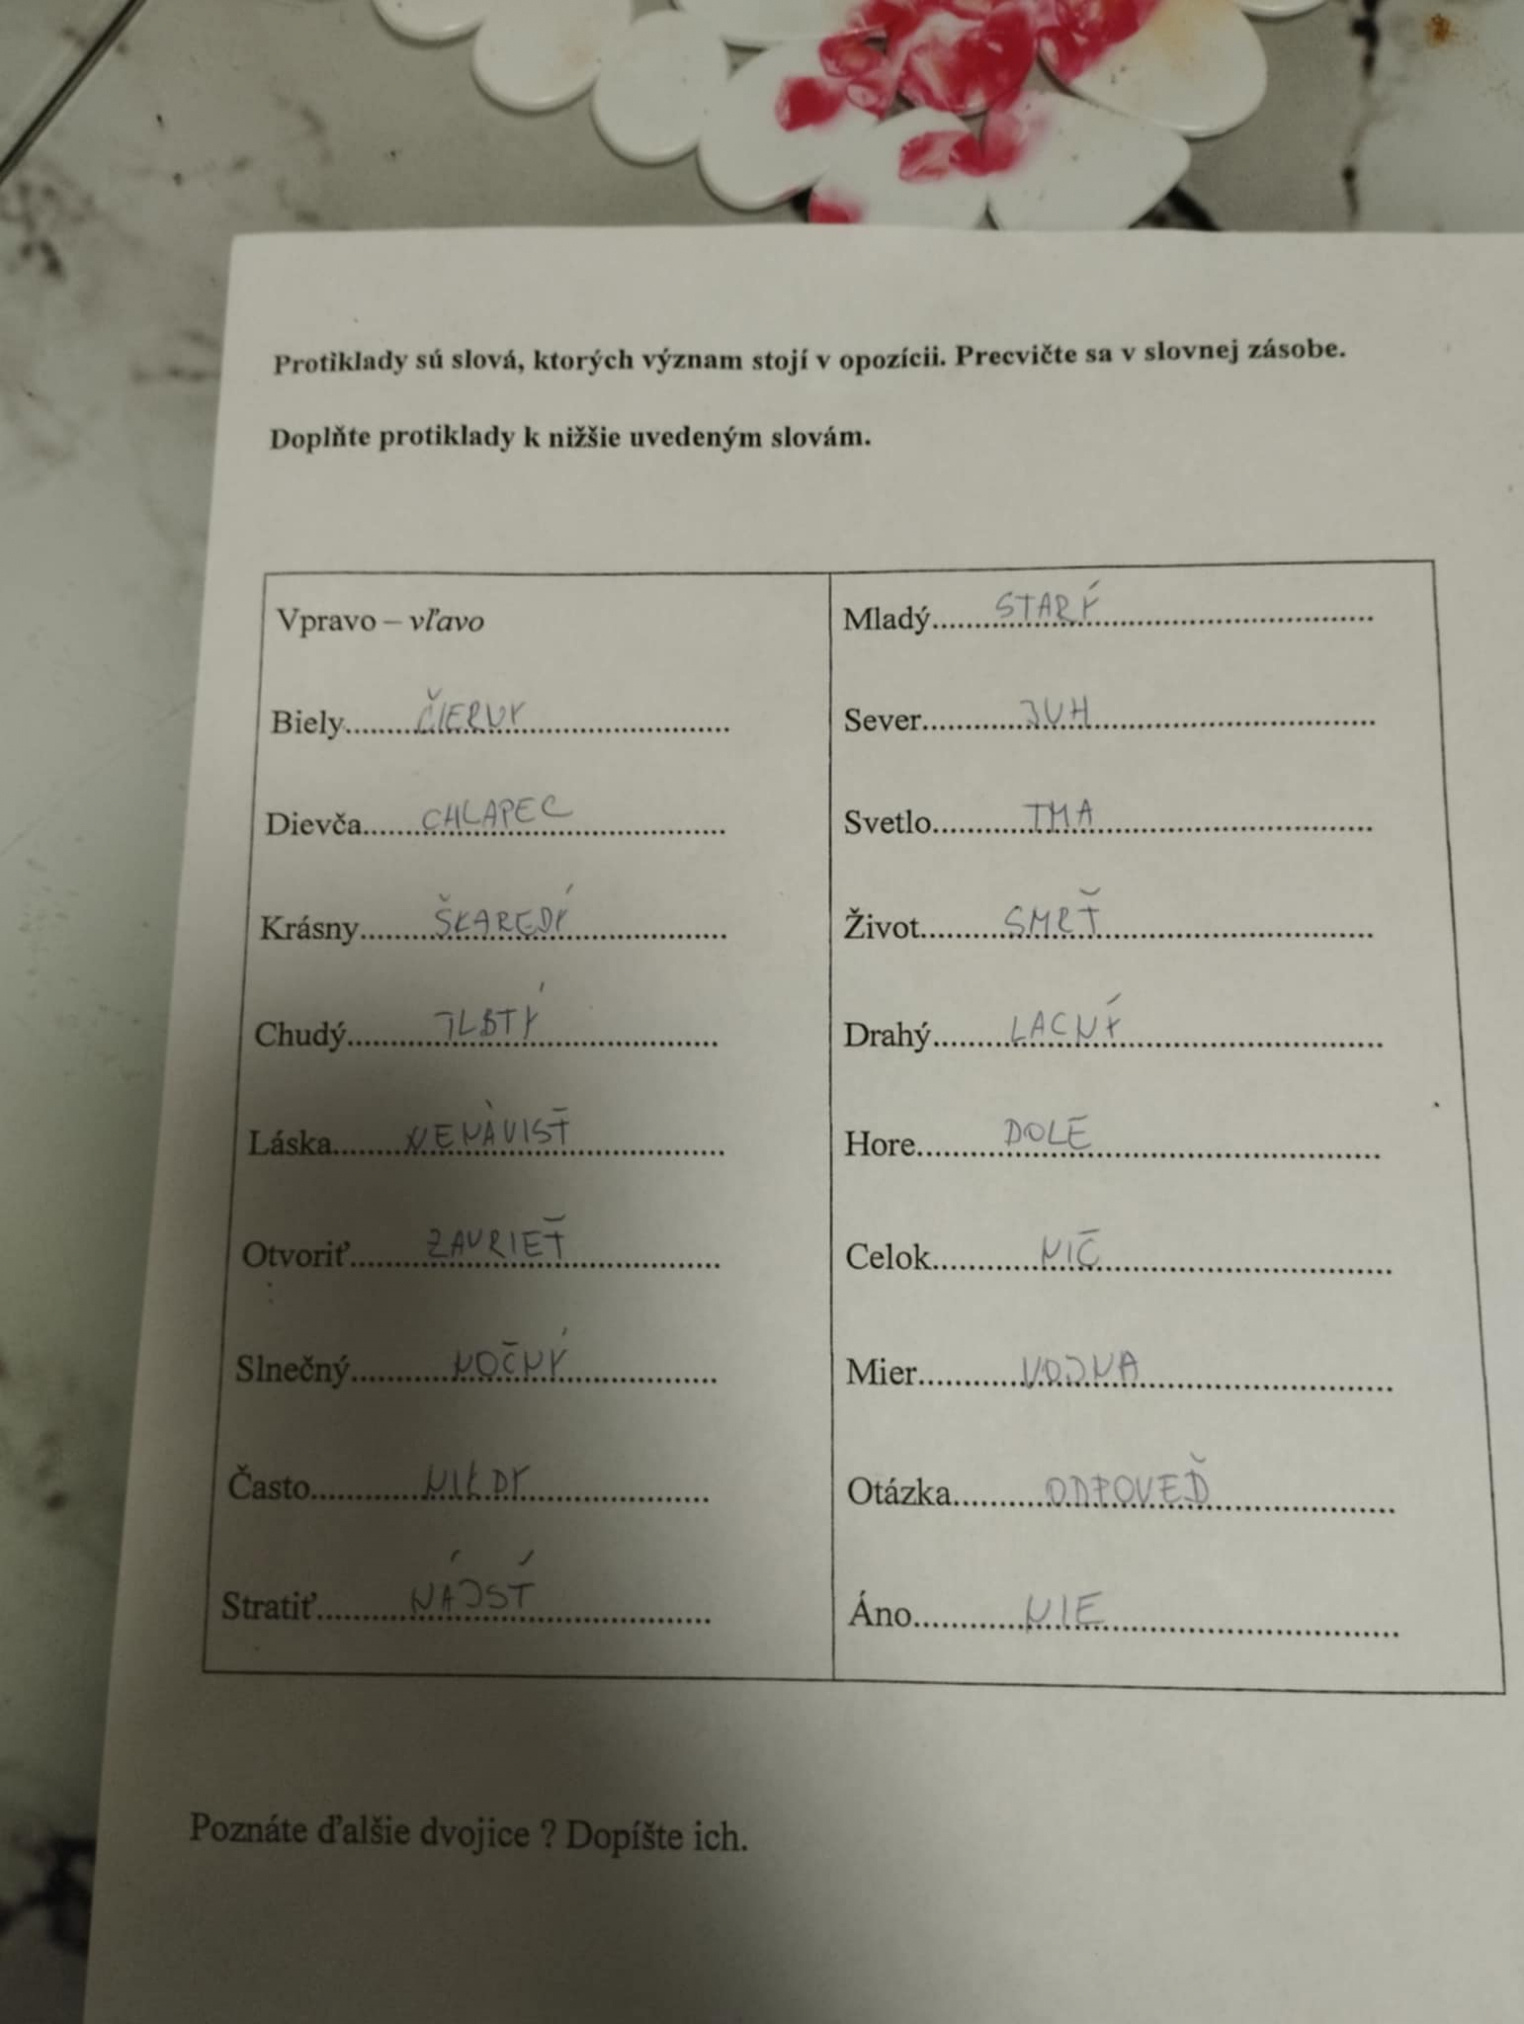 Protiklady sú slová, ktorých význam stojí v opozícii. Precvičte sa v slovnej zásobe.
Doplňte protiklady k nižšie uvedeným slovám.
Vpravo – vľavo
Biely........ČIERNY........
Dievča........CHLAPEC........
Krásny........ŠKAREDÝ........
Chudý........TLSTÝ........
Láska........NENÁVISŤ........
Otvoriť........ZAVRIEŤ........
Slnečný........NOČNÝ........
Často........NIKDY........
Stratiť........NÁJSŤ........
Mladý........STARÝ........
Sever........JUH........
Svetlo........TMA........
Život........SMRŤ........
Drahý........LACNÝ........
Hore........DOLE........
Celok........NIČ........
Mier........VOJNA........
Otázka........ODPOVEĎ........
Áno........NIE........
Poznáte ďalšie dvojice ? Dopíšte ich.